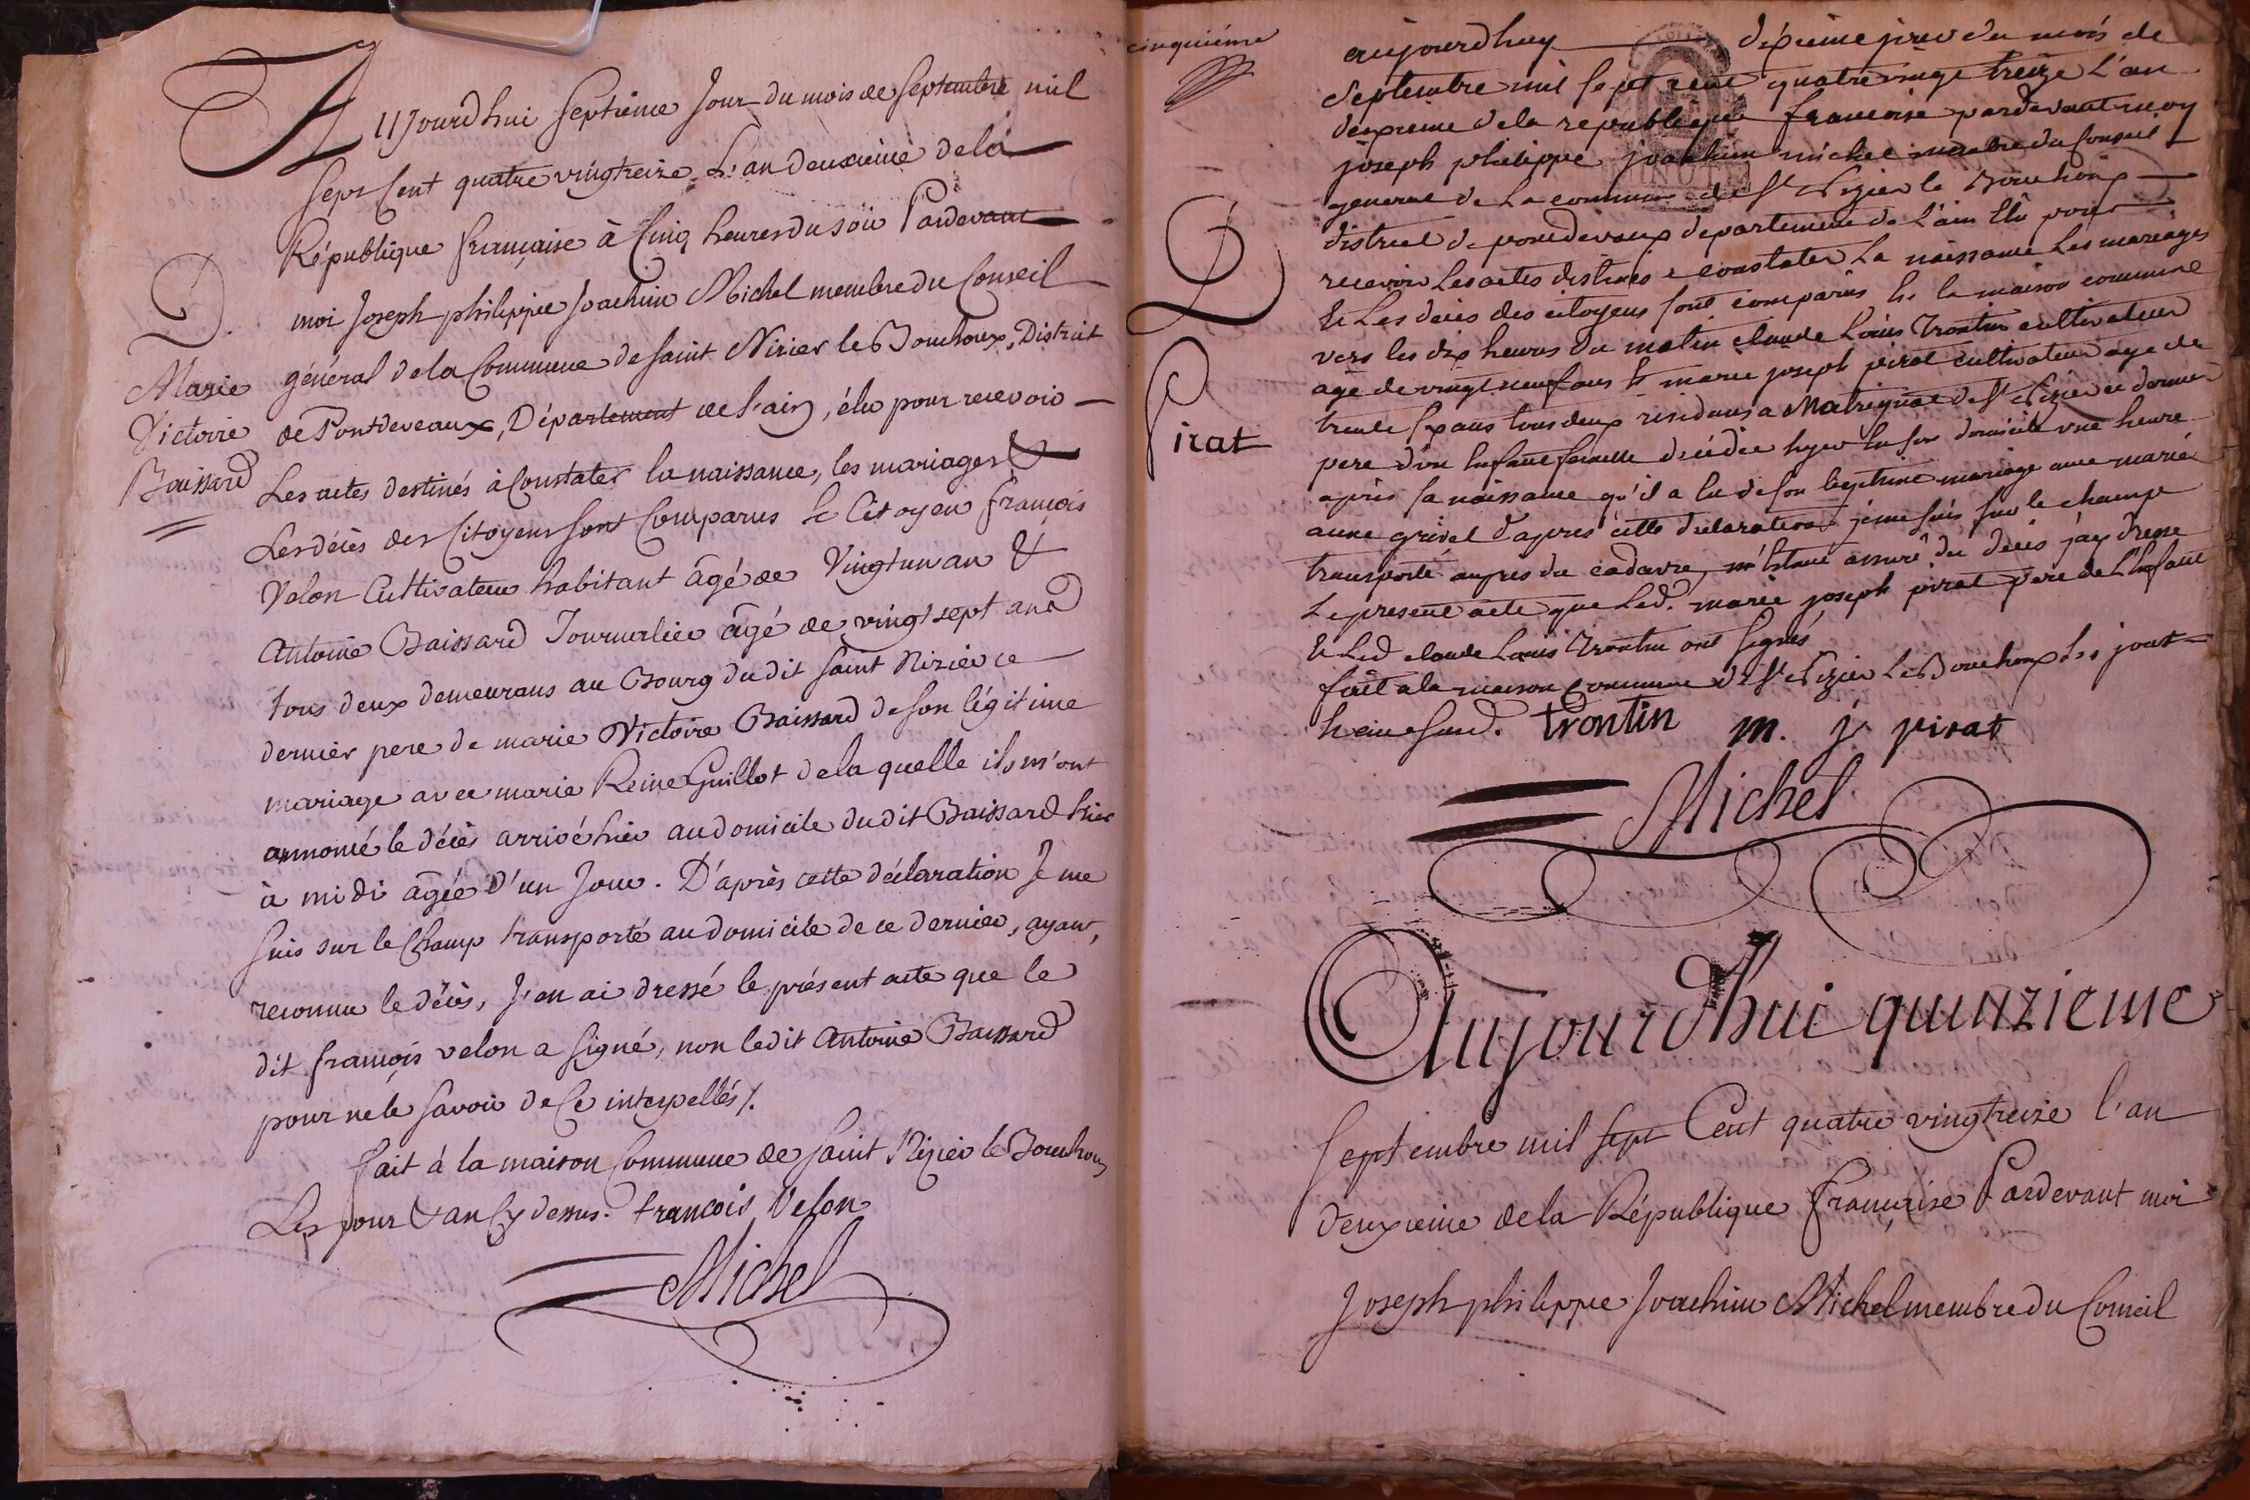 Aujourdhui septieme Jour du mois de septembre mil
sept Cent quatre vingtreize L'an deuxieme de la
République française à Cinq heures du soir Pardevant
D.
moi Joseph philippe Joachim Michel membre du Conseil
Marie
général de la Commune de saint Nizier le Bouchoux, District
Victoire
de Pontdevaux, Département de l'ain, élu pour recevoir
Baissard
Les actes destinés à Constater la naissance, les mariages &
Les décès des Citoyens sont Comparus le Citoyen françois
Velon Cultivateur habitant âgé de Vingtun an &
antoine Baissard Journalier âgé de vingt sept ans
tous deux demeurans au Bourg dudit saint Nizier ce
dernier pere de marie Victoire Baissard de son légitime
mariage avec marie Reine Guillot de la quelle ils m'ont
annoncé le décès arrivé hier au domicile dudit Baissard hier
à midi âgée d'un Jour. D'après cette déclaration Je me
suis sur le Champ transporté au domicile de ce dernier, ayant,
reconnu le décès, J'en ai dressé le présent acte que le
dit françois velon a signé, non ledit antoine Baissard
pour ne le savoir de Ce interpellés /.
fait à la maison Commune de saint Nizier le Bouchoux
Les jour & an Cy dessus. francois Velon
Michel
cinquiéme
aujourdhuy dixieme jour du mois de
septembre mil sept cent quatre vingt treize L'an
deuxieme de la republique francoise pardevant moy
joseph philippe joachim michel membre du Conseil
general de La commune de St Nizier le Bouchoux
D
district de pondevaux departement de L'ain Elu pour
recevoir Les actes destinés a constater La naissance Les mariages
Et Les décès des citoyens sont comparus En la maison commune
vers les dix heures du matin claude Louis Trontin cultivateur
agé de vingt neuf ans Et marie joseph pirat cultivateur age de
trente six ans tous deux residans a Matrignat de St Nizier ce dernier
Pirat
pere d'un Enfant femelle décédée hyer En son domicile une heure
après sa naissance qu'il a Eu de son legitime mariage avec marie
anne grivel d'apres cette déclaration je me suis sur le champ
transporté aupres du cadavre, m'Etant assuré du décès j'ay dressé
Le present acte que Led. marie joseph pirat pere de L'Enfant
Et Led claude Louis Trontin ont signés
fait a la maison commune de St Nizier Le Bouchoux Les jour
trontin m. j. pirat
Michel
Aujourd'hui quinzieme
Septembre mil sept Cent quatre vingtreize l'an
deuxieme de la République française Pardevant moi
Joseph philippe Joachim Michel membre du Conseil